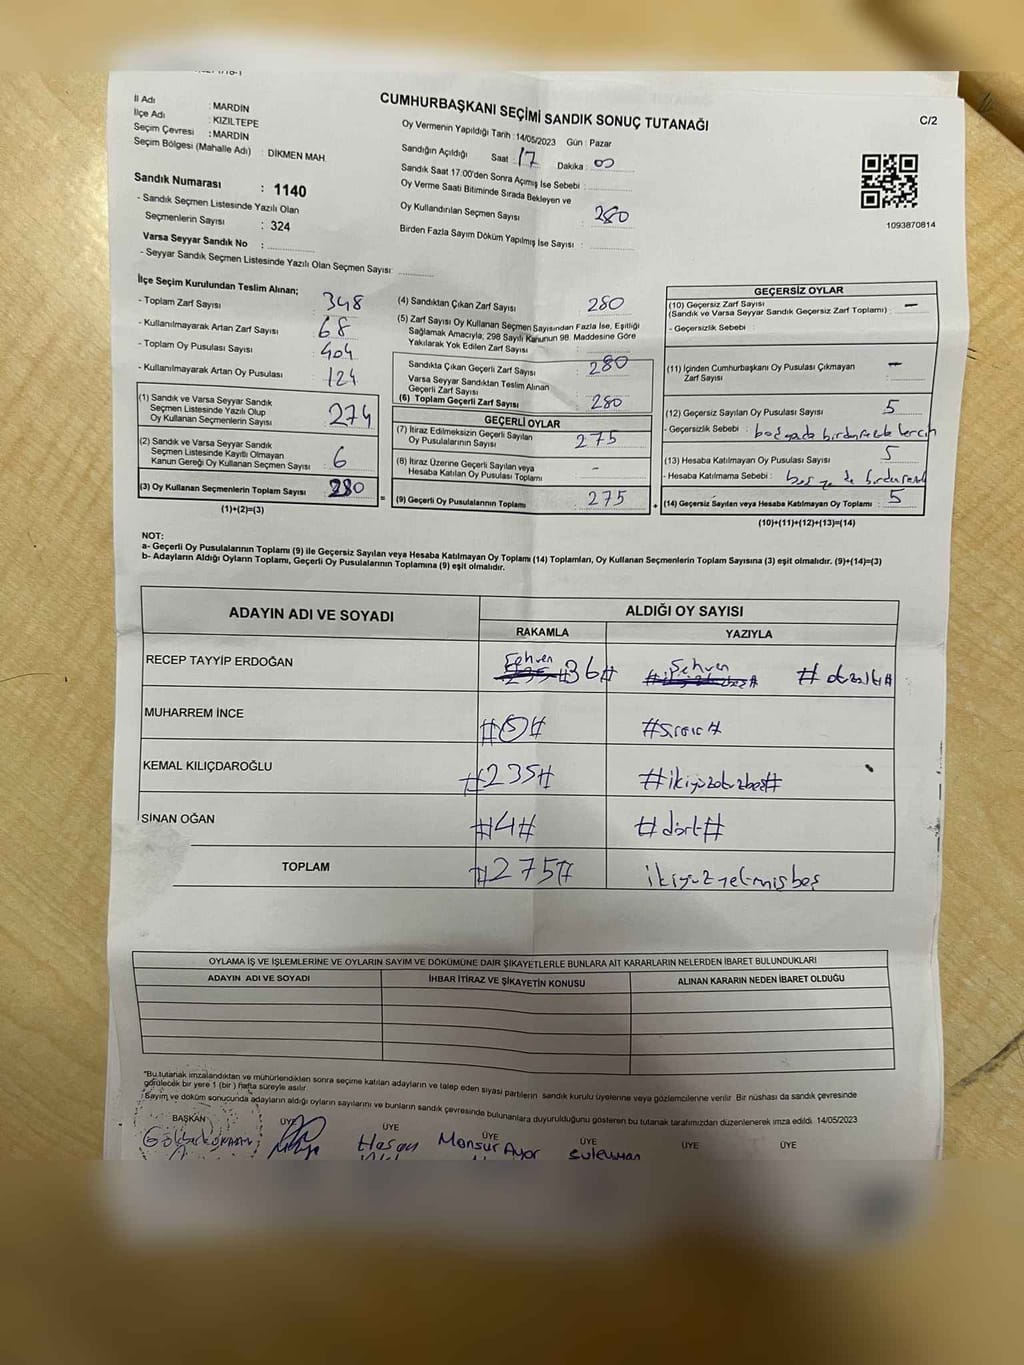 İl Adı : MARDİN
İlçe Adı : KIZILTEPE
Seçim Çevresi : MARDİN
Seçim Bölgesi (Mahalle Adı) : DİKMEN MAH.
Sandık Numarası : 1140
- Sandık Seçmen Listesinde Yazılı Olan
Seçmenlerin Sayısı : 324
Varsa Seyyar Sandık No :
- Seyyar Sandık Seçmen Listesinde Yazılı Olan Seçmen Sayısı:
CUMHURBAŞKANI SEÇİMİ SANDIK SONUÇ TUTANAĞI
Oy Vermenin Yapıldığı Tarih : 14/05/2023 Gün : Pazar
Sandığın Açıldığı Saat : 17 Dakika : 00
Sandık Saat 17.00'den Sonra Açımış İse Sebebi :
Oy Verme Saati Bitiminde Sırada Bekleyen ve
Oy Kullandırılan Seçmen Sayısı : 280
Birden Fazla Sayım Döküm Yapılmış İse Sayısı :
C/2
1093870814
İlçe Seçim Kurulundan Teslim Alınan;
- Toplam Zarf Sayısı 348
- Kullanılmayarak Artan Zarf Sayısı 68
- Toplam Oy Pusulası Sayısı 404
- Kullanılmayarak Artan Oy Pusulası 124
(1) Sandık ve Varsa Seyyar Sandık
Seçmen Listesinde Yazılı Olup
Oy Kullanan Seçmenlerin Sayısı : 274
(2) Sandık ve Varsa Seyyar Sandık
Seçmen Listesinde Kayıtlı Olmayan
Kanun Gereği Oy Kullanan Seçmen Sayısı : 6
(3) Oy Kullanan Seçmenlerin Toplam Sayısı : 280
(1)+(2)=(3)
(4) Sandıktan Çıkan Zarf Sayısı : 280
(5) Zarf Sayısı Oy Kullanan Seçmen Sayısından Fazla İse, Eşitliği
Sağlamak Amacıyla; 298 Sayılı Kanunun 98. Maddesine Göre
Yakılarak Yok Edilen Zarf Sayısı :
Sandıkta Çıkan Geçerli Zarf Sayısı : 280
Varsa Seyyar Sandıktan Teslim Alınan
Geçerli Zarf Sayısı :
(6) Toplam Geçerli Zarf Sayısı : 280
GEÇERLİ OYLAR
(7) İtiraz Edilmeksizin Geçerli Sayılan
Oy Pusulalarının Sayısı : 275
(8) İtiraz Üzerine Geçerli Sayılan veya
Hesaba Katılan Oy Pusulası Toplamı : -
(9) Geçerli Oy Pusulalarının Toplamı : 275
GEÇERSİZ OYLAR
(10) Geçersiz Zarf Sayısı
(Sandık ve Varsa Seyyar Sandık Geçersiz Zarf Toplamı) : -
- Geçersizlik Sebebi :
(11) İçinden Cumhurbaşkanı Oy Pusulası Çıkmayan
Zarf Sayısı : -
(12) Geçersiz Sayılan Oy Pusulası Sayısı : 5
- Geçersizlik Sebebi :
(13) Hesaba Katılmayan Oy Pusulası Sayısı : 5
- Hesaba Katılmama Sebebi :
(14) Geçersiz Sayılan veya Hesaba Katılmayan Oy Toplamı : 5
(10)+(11)+(12)+(13)=(14)
NOT:
a- Geçerli Oy Pusulalarının Toplamı (9) ile Geçersiz Sayılan veya Hesaba Katılmayan Oy Toplamı (14) Toplamları, Oy Kullanan Seçmenlerin Toplam Sayısına (3) eşit olmalıdır. (9)+(14)=(3)
b- Adayların Aldığı Oyların Toplamı, Geçerli Oy Pusulalarının Toplamına (9) eşit olmalıdır.
ADAYIN ADI VE SOYADI ALDIĞI OY SAYISI
RAKAMLA YAZIYLA
RECEP TAYYİP ERDOĞAN Sehven 235 #36# Sehven
MUHARREM İNCE
KEMAL KILIÇDAROĞLU #235# #ikiyüzotuzbeş#
SİNAN OĞAN #4# #dört#
TOPLAM #275# ikiyüzyetmişbeş
OYLAMA İŞ VE İŞLEMLERİNE VE OYLARIN SAYIM VE DÖKÜMÜNE DAİR ŞİKAYETLERLE BUNLARA AİT KARARLARIN NELERDEN İBARET BULUNDUKLARI
ADAYIN ADI VE SOYADI İHBAR İTİRAZ VE ŞİKAYETİN KONUSU ALINAN KARARIN NEDEN İBARET OLDUĞU
"Bu tutanak imzalandıktan ve mühürlendikten sonra seçime katılan adayların ve talep eden siyasi partilerin sandık kurulu üyelerine veya gözlemcilerine verilir. Bir nüshası da sandık çevresinde
görülecek bir yere 1 (bir) hafta süreyle asılır.
Sayım ve döküm sonucunda adayların aldığı oyların sayılarını ve bunların sandık çevresinde bulunanlara duyurulduğunu gösteren bu tutanak tarafımızdan düzenlenerek imza edildi. 14/05/2023
BAŞKAN ÜYE ÜYE ÜYE ÜYE ÜYE ÜYE
Hasan Mansur Ayar Süleyman